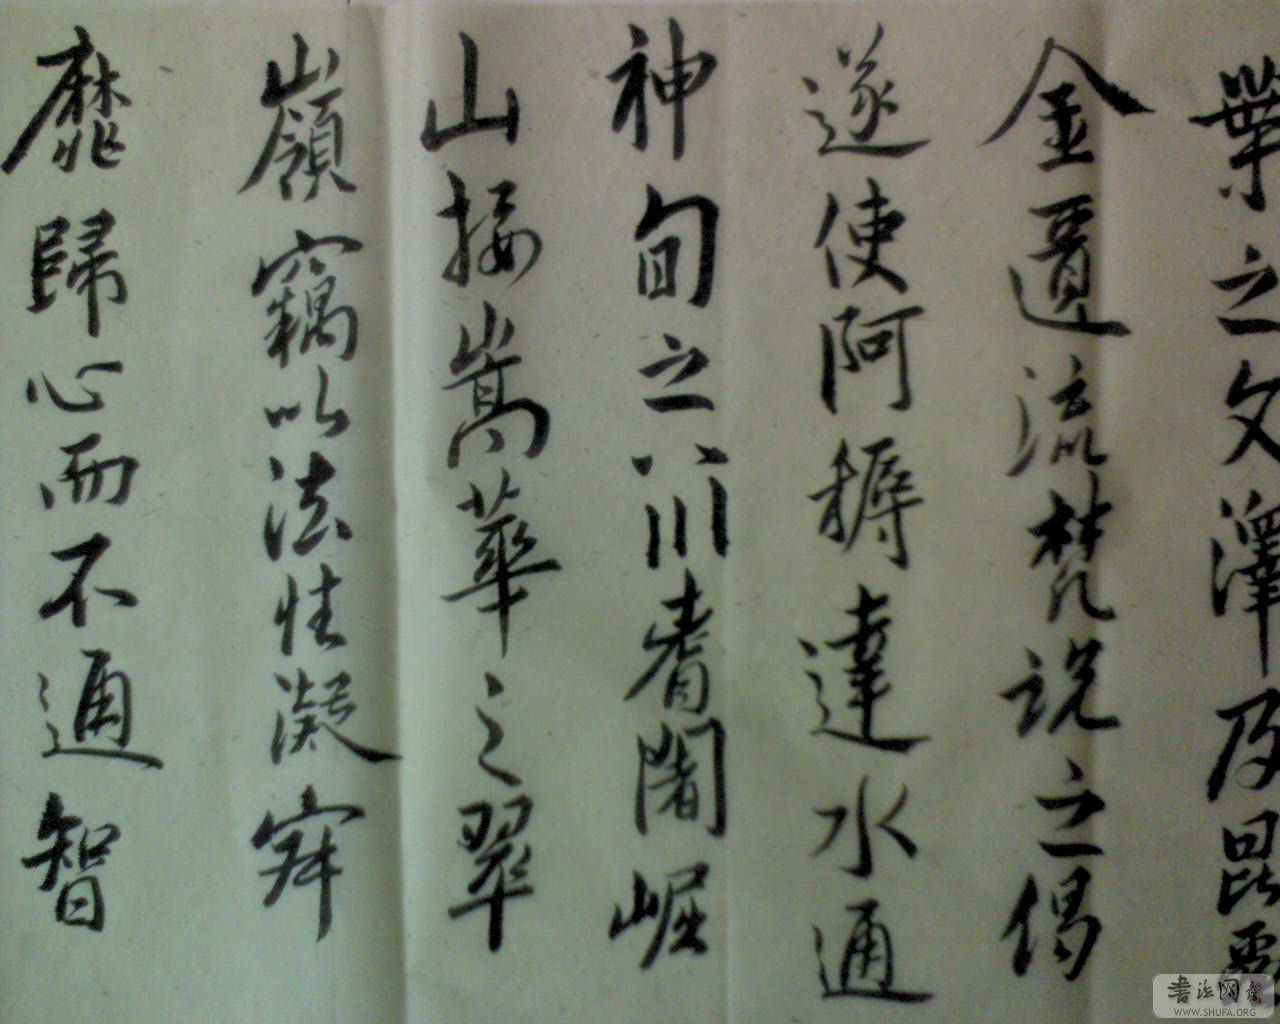 葉之文澤及昆蟲
金匱流梵說之偈
遂使阿耨達水通
神甸之八川耆闍崛
山接嵩華之翠
嶺竊以法性凝寂
靡歸心而不通智
书法网
WWW.SHUFA.ORG